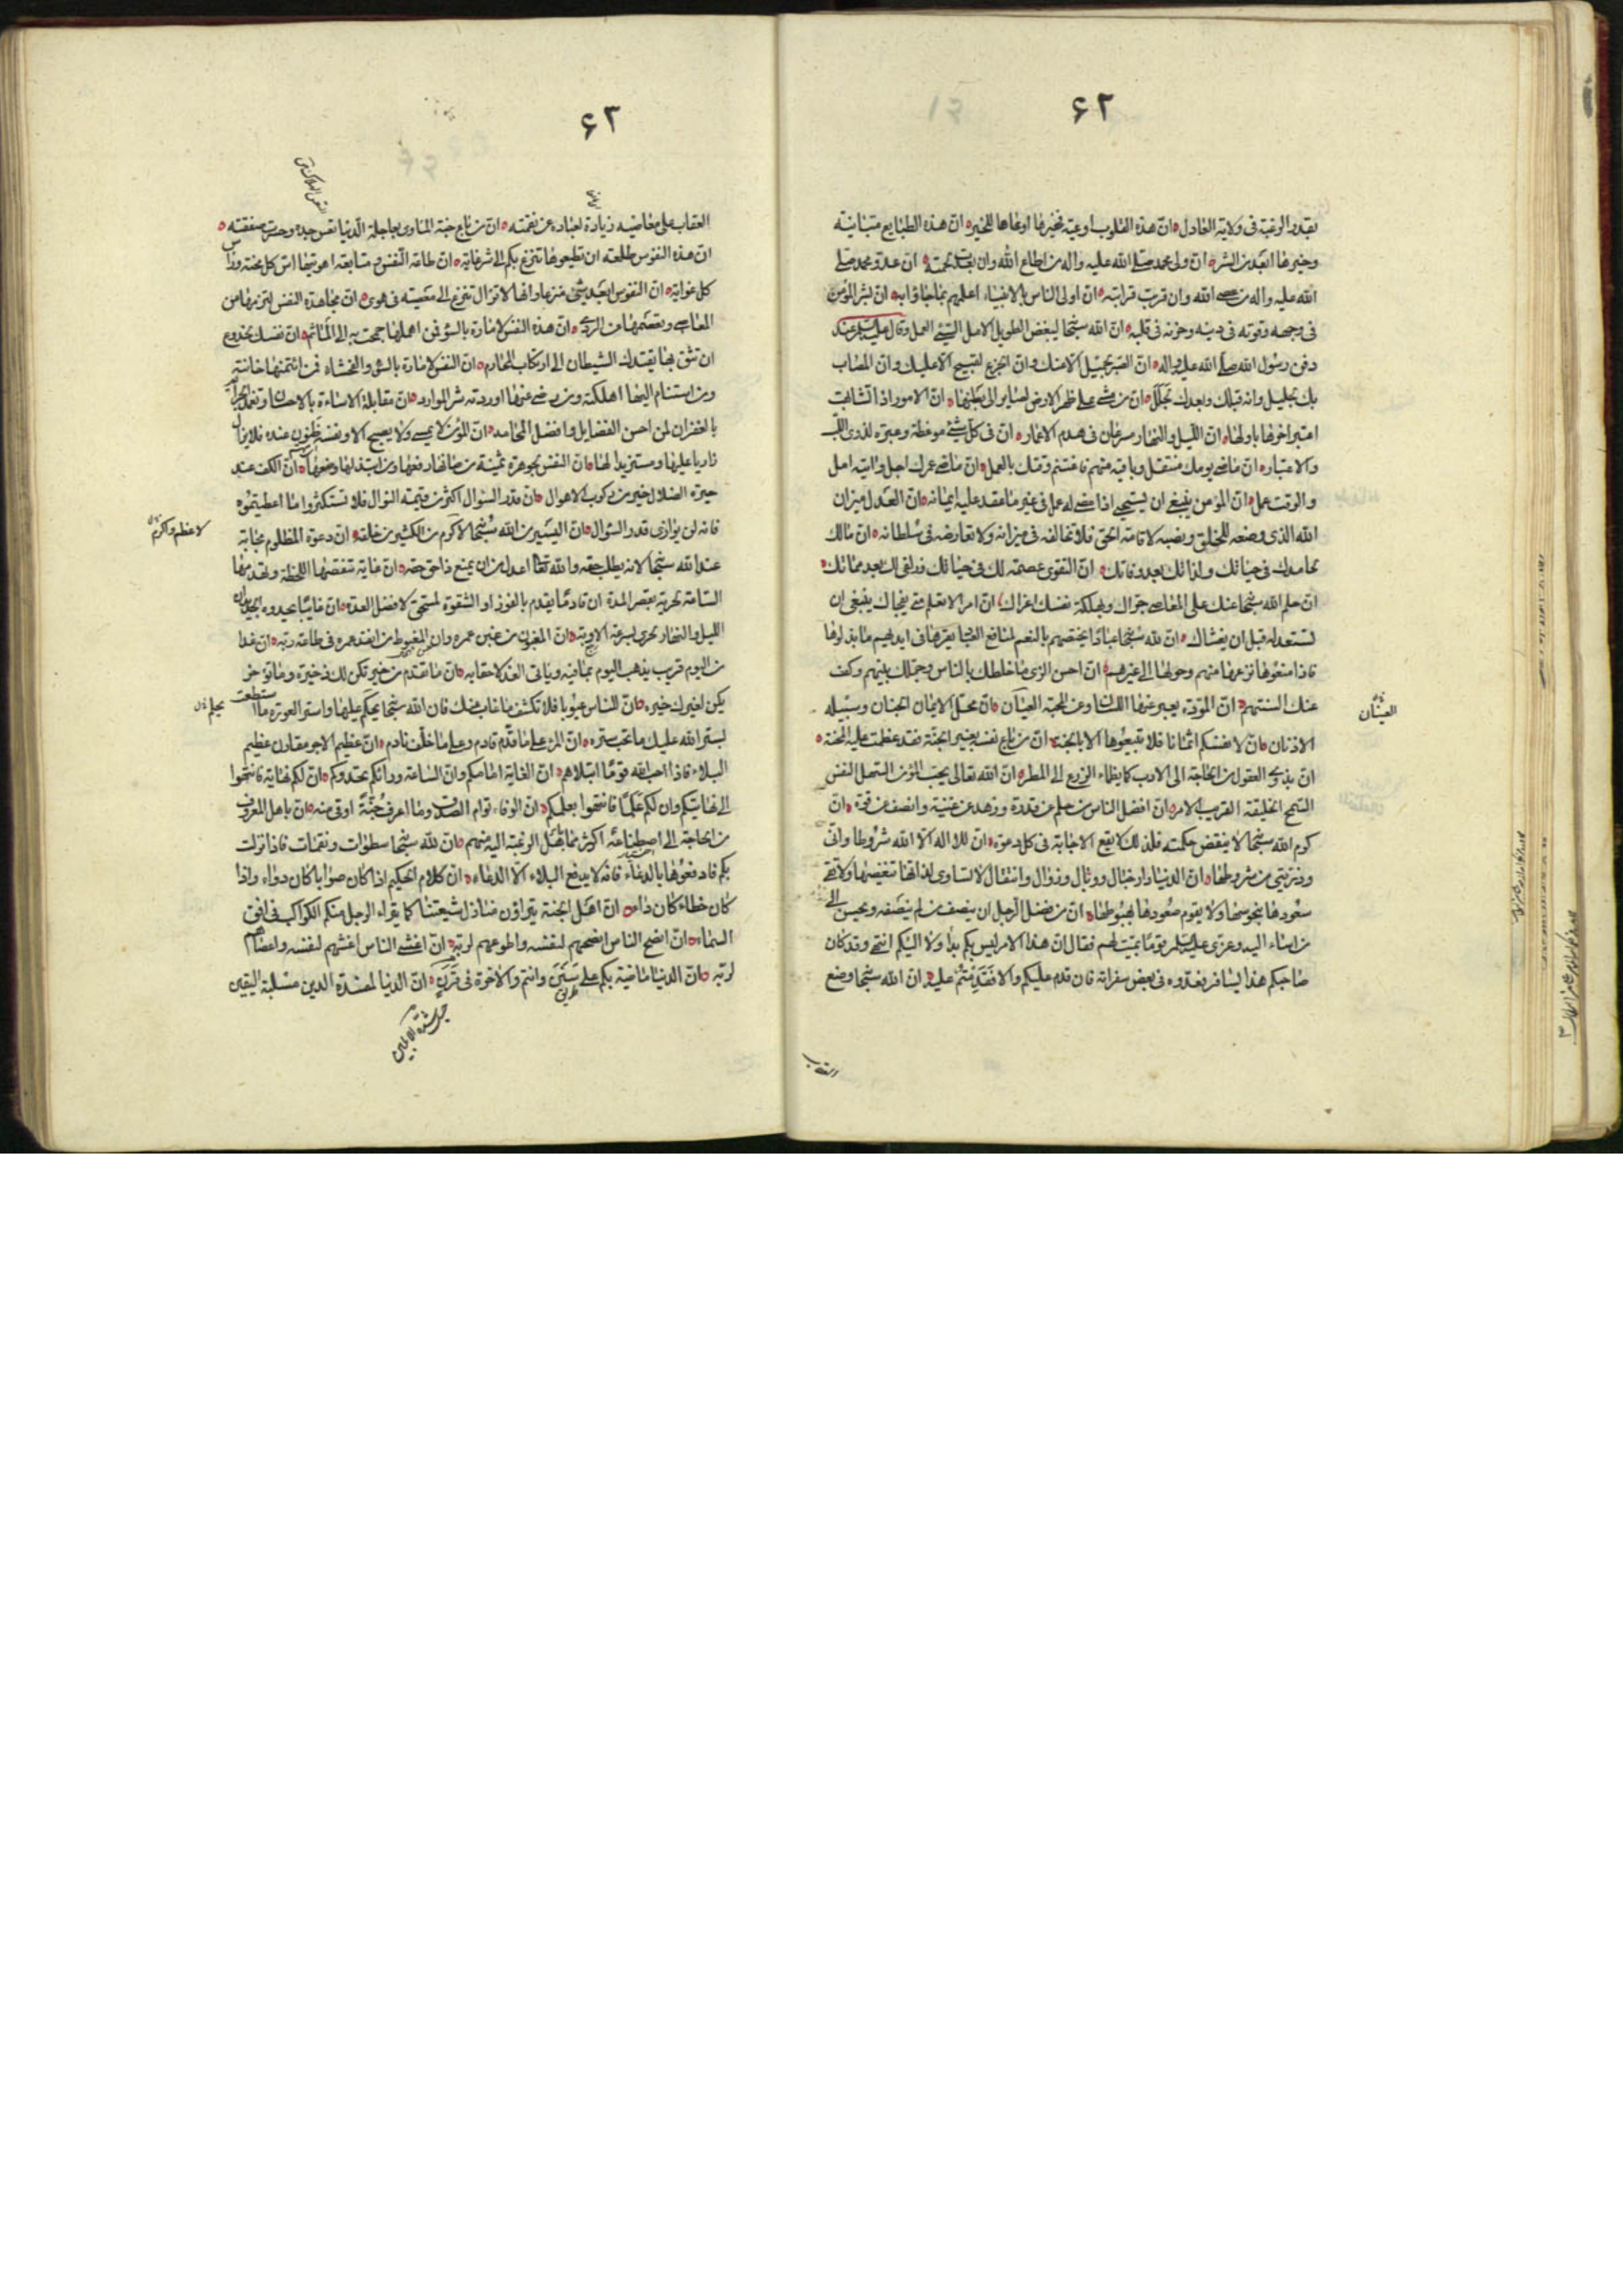 ۶۲
بقدر الرغبة فى ولاية العادل ان هذه القلوب اوعية فخيرها اوعاها للخير ان هذه الطبايع متباينة
وخيرها ابعد من الشر ان ولى محمد صلى الله عليه واله من اطاع الله وان بعدت لحمته ان عدو محمد صلى
الله عليه واله من عصى الله وان قربت قرابته ان اولى الناس بالانبياء اعلمهم بما جاؤا به ان بشر المؤمن
فى وجهه وقوته فى دينه وحزنه فى قلبه ان الله سبحا ليبغض الطويل الامل السيئ العمل وقال عليه السلم عند
دفن رسول الله صلى الله عليه واله ان الصبر لجميل الا عنك وان الجزع لقبيح الا عليك وان المصاب
بك لجليل وانه قبلك وبعدك لجلل ان من مشى على ظهر الارض لصاير الى بطنها ان الامور اذا تشابهت
اعتبر اخرها باولها ان الليل والنهار مسرعان فى هدم الاعمار ان فى كل شئ موعظة وعبرة لذوى اللب
والاعتبار ان ماضى يومك منتقل وباقيه متهم فاغتنم وقتك بالعمل ان ماضى عمرك اجل واتيه امل
والوقت عمل ان المؤمن ينبغى ان يستحيى اذا مضى له عمل فى غير ما عقد عليه ايمانه ان العدل ميزان
الله الذى وضعه للخلق ونصبه لاقامة الحق فلا تخالفه فى ميزانه ولا تعارضه فى سلطانه ان مالك
لحامدك فى حياتك ولذامك بعد وفاتك ان التقوى عصمة لك فى حياتك وزلفى لك بعد مماتك
ان حلم الله سبحا عنك على المعاصى جراك وبهلكة نفسك اغراك ان امرا لا تعلم متى يفجاك ينبغى ان
تستعد له قبل ان يغشاك ان لله سبحا عبادا يختصهم بالنعم لمنافع العباد يقرها فى ايديهم ما بذلوها
فاذا منعوها نزعها منهم وحولها الى غيرهم ان احسن الزى ما خلطك بالناس وجملك بينهم وكف
عنك السنتهم ان المودة يعبر عنها اللسان وعن المحبة العينان ان محل الايمان الجنان وسبيله
العينان
الاذنان ان لانفسكم اثمانا فلا تبيعوها الا بالجنة ان من باع نفسه بغير الجنة فقد عظمت عليه المحنة
ان بذوى العقول من الحاجة الى الادب كما يظماء الزرع الى المطر ان الله تعالى يحب المؤمن السهل النفس
السمح الخليقة القريب الامر ان افضل الناس من حلم عن قدرة وزهد عن غنية وانصف عن قوة ان
كرم الله سبحا لا ينقض حكمته فلذلك لا يقع الاجابة فى كل دعوة ان للا اله الا الله شروطا وانى
وذريتى من شروطها ان الدنيا دار خبال ووبال وزوال وانتقال لا تساوى لذاتها تنغيصها ولا تفى
سعودها بنحوسها ولا يقوم صعودها بهبوطها ان من فضل الرجل ان ينصف من لم ينصفه ويحسن الى
من اساء اليه وعزى عليه السلم قوما بميت لهم فقال ان هذا الامر ليس بكم بدا ولا اليكم انتهى وقد كان
صاحبكم هذا يسافر فعدوه فى بعض سفراته فان قدم عليكم والا فقد قدمتم عليه ان الله سبحا وضع
العقاب
۶۳
العقاب على معاصيه زيادة لعباده عن نقمته ان من باع جنة الماوى بعاجلة الدنيا تعس جده وخسرت صفقته
ان هذه النفوس طلعة ان تطيعوها تنزع بكم الى شر غاية ان طاعة النفس ومتابعة اهويتها اس كل محنة وراس
كل غواية ان النفوس ابعد شئ منزعا وانها لا تزال تنزع الى معصية فى هوى ان مجاهدة النفس لتزمها من
المعاصى وتعصمها من الردى ان هذه النفس لامارة بالسؤ فمن اهملها جمحت به الى المآثم ان نفسك لخدوع
ان تثق بها يقتدك الشيطان الى ارتكاب المحارم ان النفس لامارة بالسؤ والفحشاء فمن ائتمنها خانته
ومن استنام اليها اهلكته ومن رضى عنها اوردته شر الموارد ان مقابلة الاساءة بالاحسان وتغمد الجرائم
بالغفران لمن احسن الفضايل وافضل المحامد ان المؤمن لا يمسى ولا يصبح الا ونفسه ظنون عنده فلا يزال
زاريا عليها ومستزيدا لها ان النفس لجوهرة ثمينة من صانها رفعها ومن ابتذلها وضعها ان الكف عند
حيرة الضلال خير من ركوب الاهوال ان قدر السؤال اكثر من قيمة النوال فلا تستكثروا ما اعطيتموه
فانه لن يوازى قدر السؤال ان اليسير من الله سبحا لاكرم من الكثير من خلقه ان دعوة المظلوم مجابة
لاعظم واكرم
عند الله سبحا لانه يطلب حقه والله تعا اعدل من ان يمنع ذا حق حقه ان غاية تنقصها اللحظة وتهدمها
الساعة لحرية بقصر المدة ان قادما يقدم بالفوز او الشقوة لمستحق لافضل العدة ان غايبا يحدوه الجديدان
الليل والنهار لحرى بسرعة الاوبة ان المغبون من غبن عمره وان المغبوط من انفد عمره فى طاعة ربه ان غدا
من اليوم قريب يذهب اليوم بما فيه وياتى الغد لاحقا به ان ما تقدم من خير يكن لك ذخيره وما تؤخره
يكن لغيرك خيره ان للناس عيوبا فلا تكشف ما غاب عنك فان الله سبحا يحكم عليها واستر العورة ما استطعت
يحلم
يستر الله عليك ما تحب ستره ان المرء على ما قدم قادم وعلى ما خلف نادم ان عظيم الاجر مقارن عظيم
البلاء فاذا احب الله قوما ابتلاهم ان الغاية امامكم وان الساعة ورائكم تحدوكم ان لكم نهاية فانتهوا
الى نهايتكم وان لكم علما فانتهوا بعلمكم ان الوفاء توام الصدق وما اعرف جنة اوقى منه ان باهل المعروف
من الحاجة الى اصطناعه اكثر مما باهل الرغبة اليه منهم ان لله سبحا سطوات ونقمات فاذا نزلت
بكم فادفعوها بالدعاء فانه لا يدفع البلاء الا الدعاء ان كلام الحكيم اذا كان صوابا كان دواء واذا
كان خطاء كان داء ان اهل الجنة يتراؤن منازل شيعتنا كما يتراء الرجل منكم الكواكب فى افق
السماء ان انصح الناس انصحهم لنفسه واطوعهم لربه ان اغش الناس اغشهم لنفسه واعصاهم
لربه ان الدنيا ماضية بكم على سنن وانتم والاخرة فى قرن ان الدنيا لمفسدة الدين مسلبة اليقين